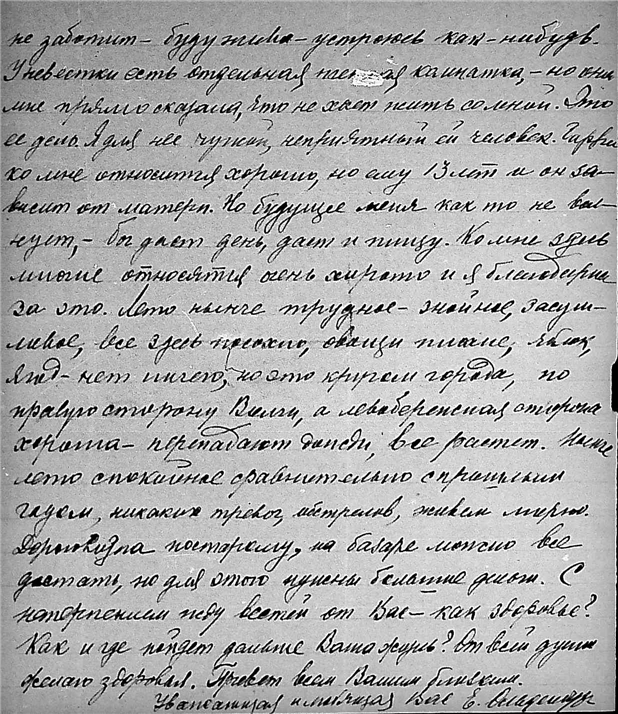 не заботит – буду жива – устроюсь как-нибудь.
У невестки есть отдельная комнатка, – но она
мне прямо сказала, что не хочет жить со мной. Это
ее дело. Я для нее чужой, неприятный ей человек.
ко мне относится хорошо, но ему 13 лет и он за-
висит от матери. Но будущее меня как то не вол-
нует, – бог даст день, даст и пищу. Ко мне здесь
многие относятся очень хорошо и я благодарна
за это. Лето нынче трудное – знойное, засуш-
ливое, все здесь посохло, овощи плохие, яблок,
ягод – нет ничего, но это кругом города, по
правую сторону Волги, а левобережная сторона
хороша – перепадают дожди, все растет. Нынче
лето спокойное сравнительно с прошлым
годом, никаких тревог, обстрелов, живем мирно.
Дороговизна постарому, на базаре можно все
достать, но для этого нужны большие деньги. С
нетерпением жду вестей от Вас – как здоровье?
Как и где пойдет дальше Ваша жизнь? От всей души
желаю здоровья. Привет всем Вашим близким.
Уважающая и любящая Вас Е.